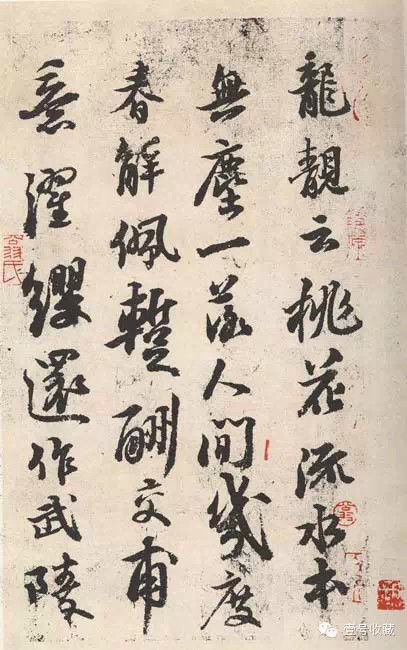 龍靚云桃花流水本
無塵一落人間幾度
春解佩蹔酬交甫
意濯纓還作武陵
壹号收藏